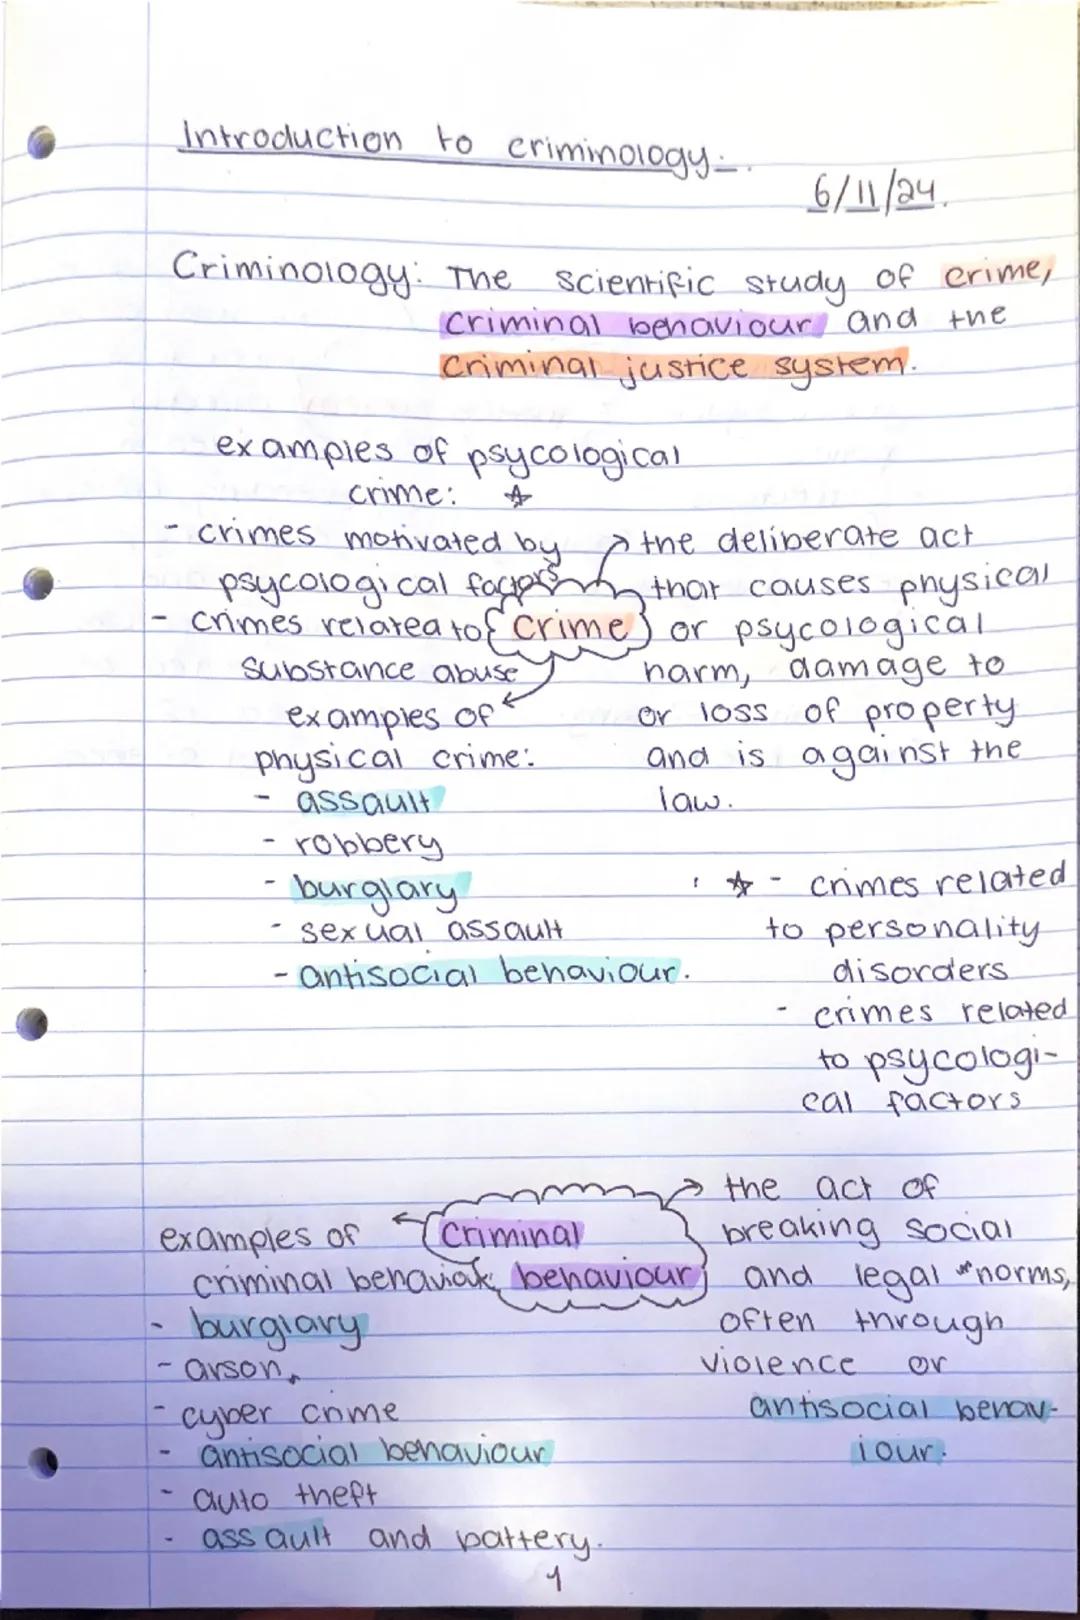 Introduction to criminology:.
6/11/24.
Criminology: The scientific study of crime,
criminal behaviour and the
criminal justice system.
examples of psycological
crime: ☆
- crimes motivated by
psycological factors
- crimes related to
substance abuse
crime
the deliberate act
that causes physical
or psycological
harm, damage to
or loss of property
and is against the
law.
examples of
physical crime:
- assault
- robbery
- burglary
- sexual assault
- antisocial behaviour.
☆ - crimes related
to personality
disorders
- crimes related
to psycologi-
cal factors
criminal
behaviour
the act of
breaking social
and legal norms,
often through
violence or
antisocial behav-
iour.
examples of
criminal behaviour
- burglary
- arson,
- cyber crime
- antisocial behaviour
- auto theft
- assault and battery.
1